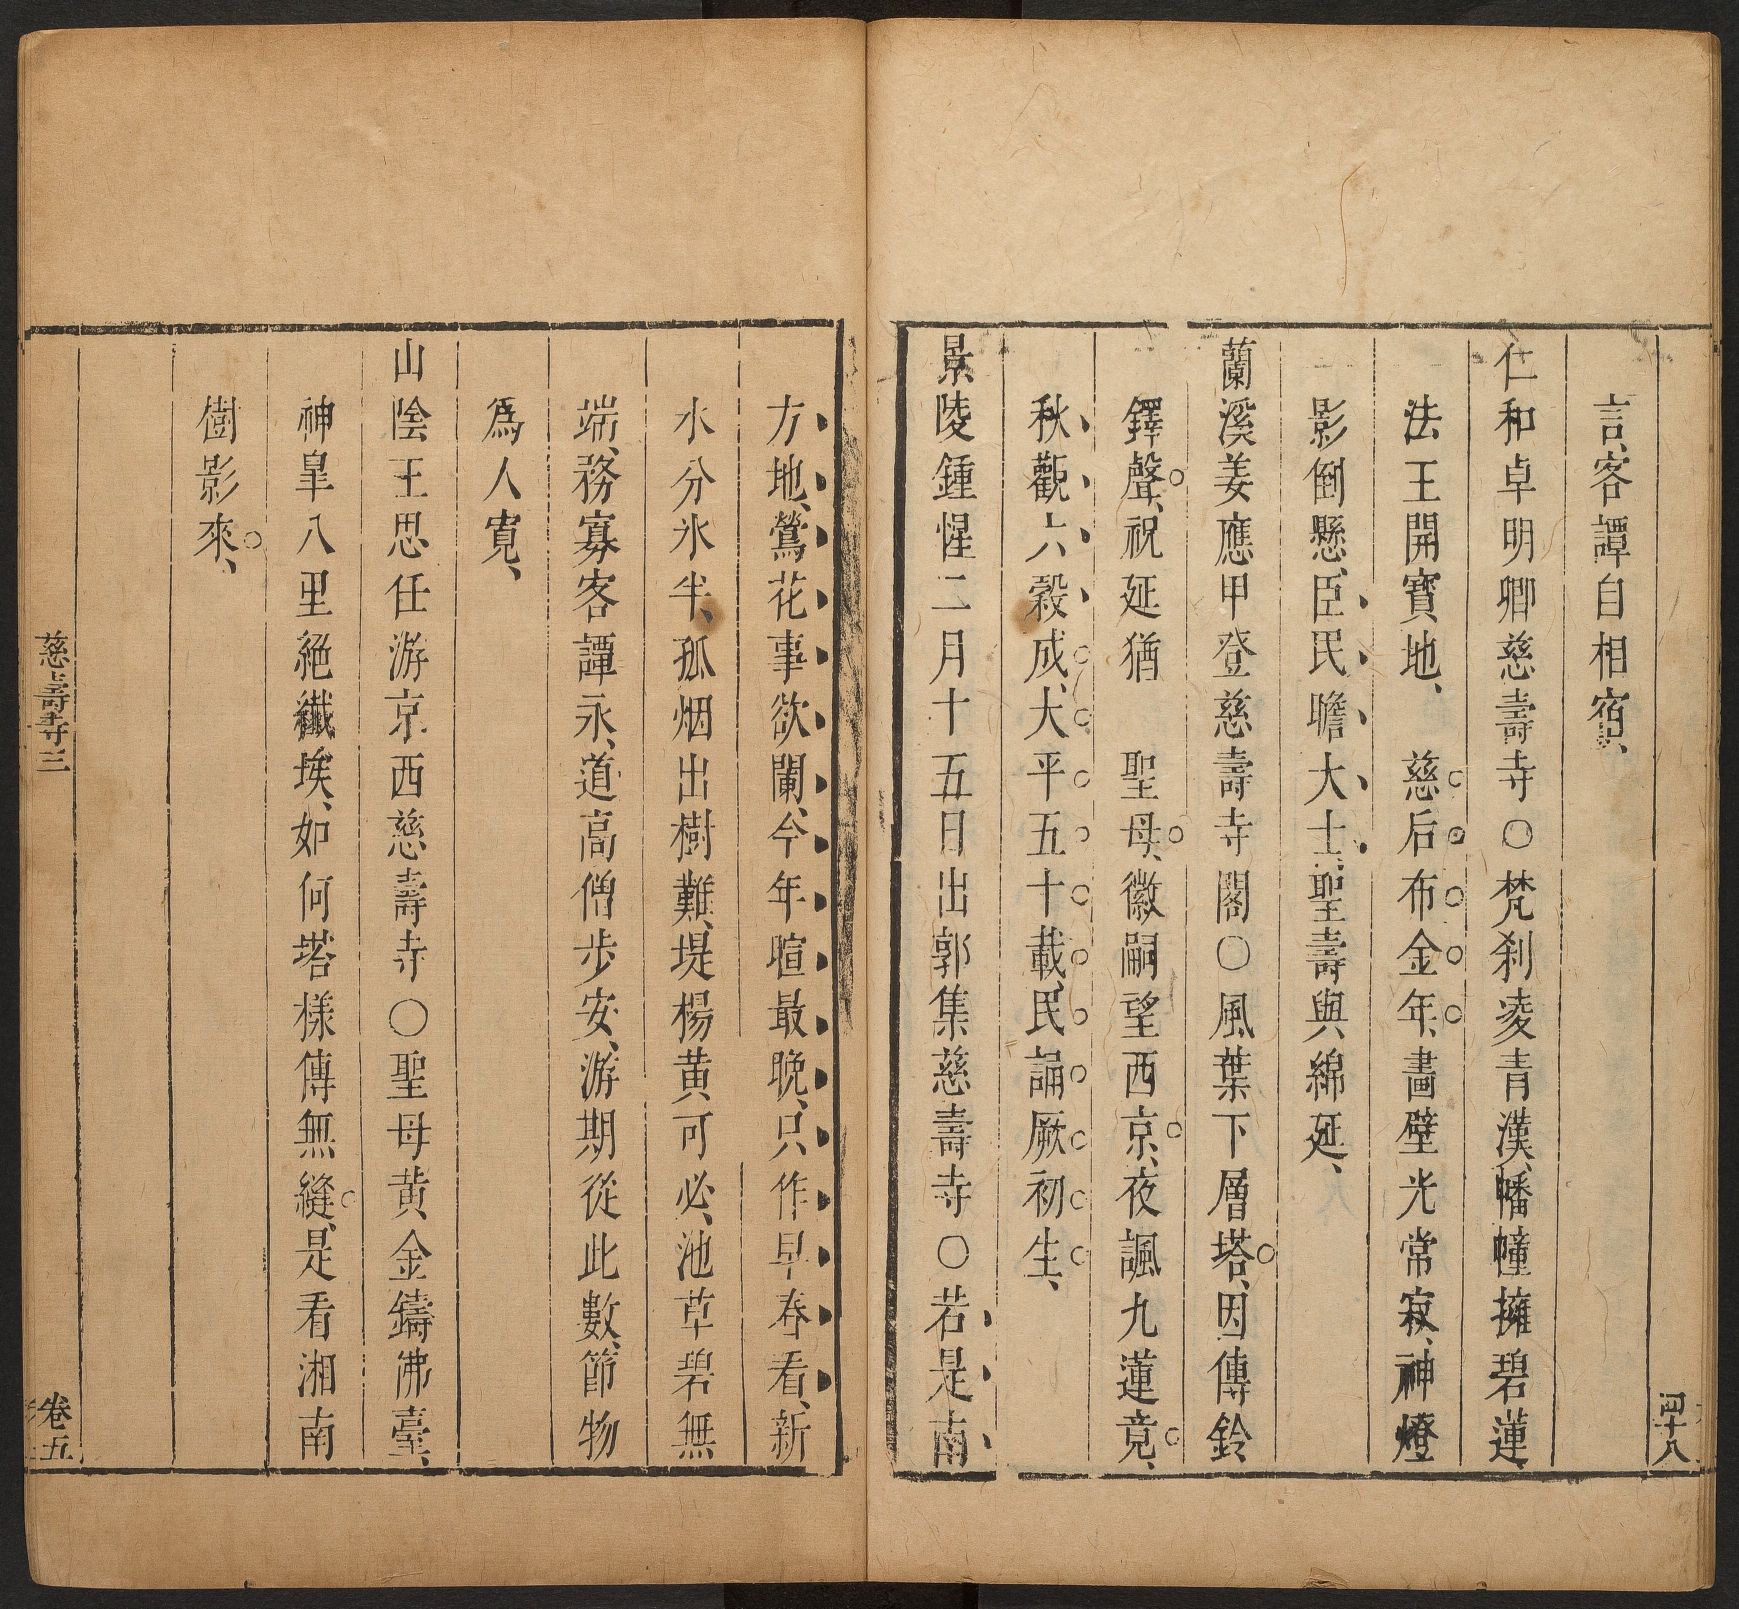 四十八
言、客譚自相賔、
仁和卓明卿慈壽寺○梵刹凌青漢、幡幢擁碧蓮、
法王開寶地、　慈后布金年、畵壁光常寂、神燈
影倒懸、臣民瞻大士、聖壽與綿延、
蘭溪姜應甲登慈壽寺閣○風葉下層塔、因傳鈴
鐸聲、祝延猶　聖母、徽嗣望西京、夜諷九蓮竟、
秋觀六穀成、大平五十載、民誦厥初生、
景陵鍾惺二月十五日出郭集慈壽寺○若是南
方地、鶯花事欲闌、今年暄最晚、只作早春看、新
水分氷半、孤烟出樹難、堤楊黄可必、池草碧無
端、務寡客譚永、道高僧步安、游期從此數、節物
爲人寬、
山陰王思任游京西慈壽寺○聖母黄金鑄佛臺、
神臯八里絶纖埃、如何塔樣傳無縫、是看湘南
樹影來、
慈壽寺三
卷五